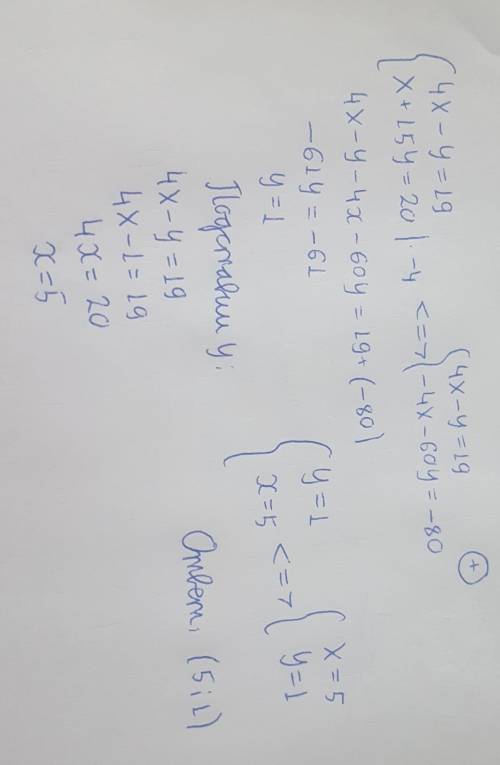 { 4x - y = 19
{ x + 15y = 20 | · -4 <=> { 4x - y = 19
{ -4x - 60y = -80 (+)
4x - y - 4x - 60y = 19 + (-80)
-61y = -61
y = 1
Подставим y:
4x - y = 19
4x - 1 = 19
4x = 20
x = 5
{ y = 1
{ x = 5 <=> { x = 5
{ y = 1
Ответ: (5; 1)